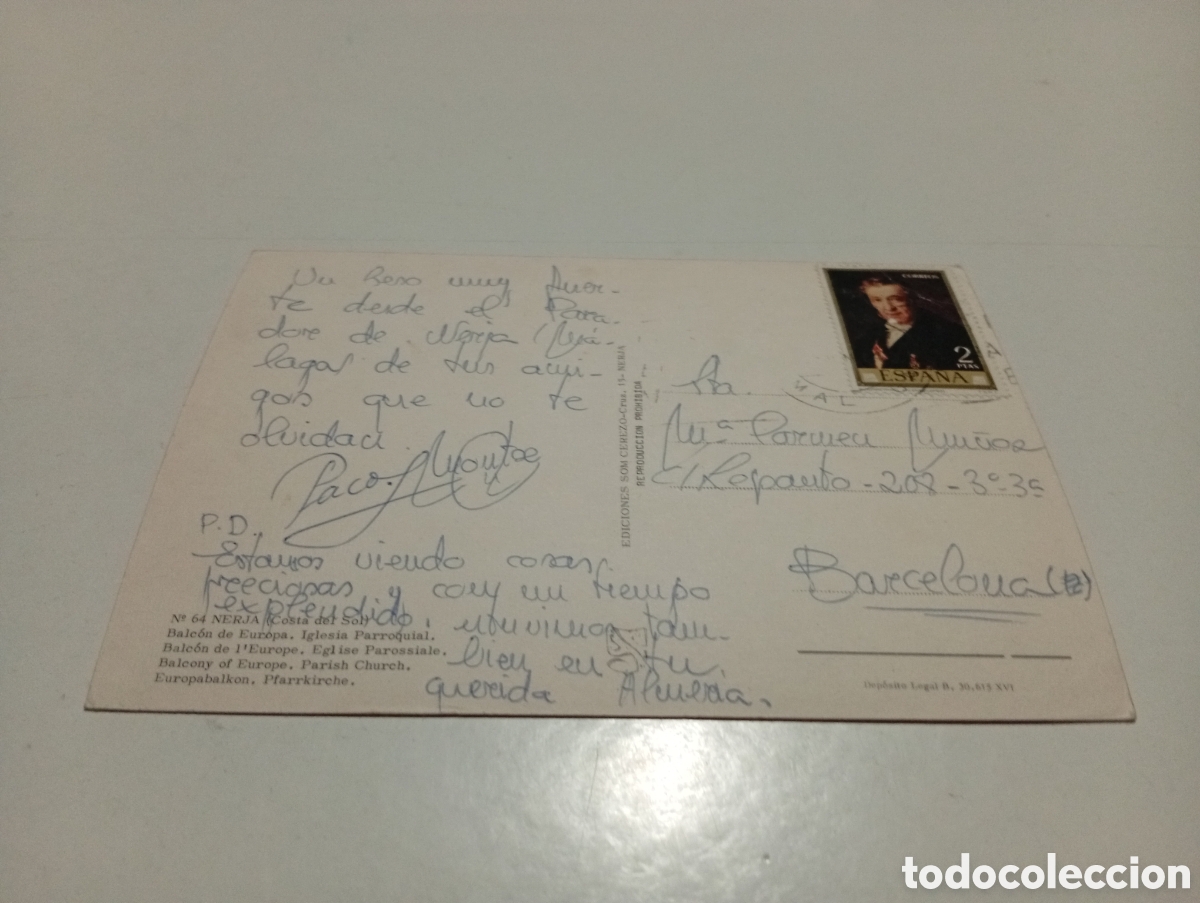 Un beso muy fuer-
te desde el Para-
dore de Nerja (Má-
laga) de tus ami-
gos que no te
olvidan
Paco Montoe
P.D.
Estamos viendo cosas
preciosas y con un tiempo
explendido, estuvimos tam-
bien en tu
querida Almería.
Nº 64 NERJA (Costa del Sol)
Balcón de Europa. Iglesia Parroquial.
Balcón de l'Europe. Eglise Parossiale.
Balcony of Europe. Parish Church.
Europabalkon. Pfarrkirche.
EDICIONES SOM CEREZO-Cruz, 15-NERJA
REPRODUCCION PROHIBIDA
CORREOS
2
PTAS
ESPAÑA
Sta.
Mª Carmen Muñoz
C/ Lepanto - 208 - 3º-3ª
Barcelona
Depósito Legal B. 30.613 XVI
todocoleccion